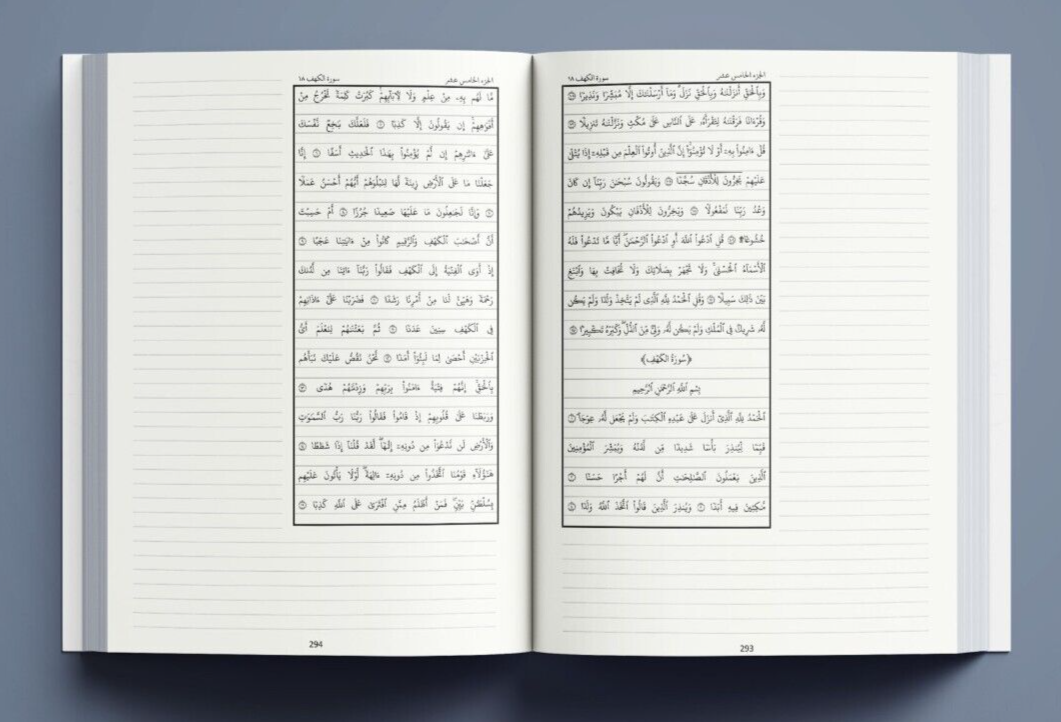 سورة الكهف ١٨ الجزء الخامس عشر
وَبِٱلْحَقِّ أَنزَلْنَٰهُ وَبِٱلْحَقِّ نَزَلَ ۗ وَمَآ أَرْسَلْنَٰكَ إِلَّا مُبَشِّرًا وَنَذِيرًا ١٠٥
وَقُرْءَانًا فَرَقْنَٰهُ لِتَقْرَأَهُۥ عَلَى ٱلنَّاسِ عَلَىٰ مُكْثٍ وَنَزَّلْنَٰهُ تَنزِيلًا ١٠٦
قُلْ ءَامِنُوا۟ بِهِۦٓ أَوْ لَا تُؤْمِنُوٓا۟ ۚ إِنَّ ٱلَّذِينَ أُوتُوا۟ ٱلْعِلْمَ مِن قَبْلِهِۦٓ إِذَا يُتْلَىٰ
عَلَيْهِمْ يَخِرُّونَ لِلْأَذْقَانِ سُجَّدًا ١٠٧ وَيَقُولُونَ سُبْحَٰنَ رَبِّنَآ إِن كَانَ
وَعْدُ رَبِّنَا لَمَفْعُولًا ١٠٨ وَيَخِرُّونَ لِلْأَذْقَانِ يَبْكُونَ وَيَزِيدُهُمْ
خُشُوعًا ۩ ١٠٩ قُلِ ٱدْعُوا۟ ٱللَّهَ أَوِ ٱدْعُوا۟ ٱلرَّحْمَٰنَ ۖ أَيًّا مَّا تَدْعُوا۟ فَلَهُ
ٱلْأَسْمَآءُ ٱلْحُسْنَىٰ ۚ وَلَا تَجْهَرْ بِصَلَاتِكَ وَلَا تُخَافِتْ بِهَا وَٱبْتَغِ
بَيْنَ ذَٰلِكَ سَبِيلًا ١١٠ وَقُلِ ٱلْحَمْدُ لِلَّهِ ٱلَّذِى لَمْ يَتَّخِذْ وَلَدًا وَلَمْ يَكُن
لَّهُۥ شَرِيكٌ فِى ٱلْمُلْكِ وَلَمْ يَكُن لَّهُۥ وَلِىٌّ مِّنَ ٱلذُّلِّ ۖ وَكَبِّرْهُ تَكْبِيرًۢا ١١١
﴿سُورَةُ الكَهْفِ﴾
بِسْمِ ٱللَّهِ ٱلرَّحْمَٰنِ ٱلرَّحِيمِ
ٱلْحَمْدُ لِلَّهِ ٱلَّذِىٓ أَنزَلَ عَلَىٰ عَبْدِهِ ٱلْكِتَٰبَ وَلَمْ يَجْعَل لَّهُۥ عِوَجَا ۜ ١
قَيِّمًا لِّيُنذِرَ بَأْسًا شَدِيدًا مِّن لَّدُنْهُ وَيُبَشِّرَ ٱلْمُؤْمِنِينَ
ٱلَّذِينَ يَعْمَلُونَ ٱلصَّٰلِحَٰتِ أَنَّ لَهُمْ أَجْرًا حَسَنًا ٢
مَّٰكِثِينَ فِيهِ أَبَدًا ٣ وَيُنذِرَ ٱلَّذِينَ قَالُوا۟ ٱتَّخَذَ ٱللَّهُ وَلَدًا ٤
293
سورة الكهف ١٨ الجزء الخامس عشر
مَّا لَهُم بِهِۦ مِنْ عِلْمٍ وَلَا لِـَٔابَآئِهِمْ ۚ كَبُرَتْ كَلِمَةً تَخْرُجُ مِنْ
أَفْوَٰهِهِمْ ۚ إِن يَقُولُونَ إِلَّا كَذِبًا ٥ فَلَعَلَّكَ بَٰخِعٌ نَّفْسَكَ
عَلَىٰٓ ءَاثَٰرِهِمْ إِن لَّمْ يُؤْمِنُوا۟ بِهَٰذَا ٱلْحَدِيثِ أَسَفًا ٦ إِنَّا
جَعَلْنَا مَا عَلَى ٱلْأَرْضِ زِينَةً لَّهَا لِنَبْلُوَهُمْ أَيُّهُمْ أَحْسَنُ عَمَلًا
٧ وَإِنَّا لَجَٰعِلُونَ مَا عَلَيْهَا صَعِيدًا جُرُزًا ٨ أَمْ حَسِبْتَ
أَنَّ أَصْحَٰبَ ٱلْكَهْفِ وَٱلرَّقِيمِ كَانُوا۟ مِنْ ءَايَٰتِنَا عَجَبًا ٩
إِذْ أَوَى ٱلْفِتْيَةُ إِلَى ٱلْكَهْفِ فَقَالُوا۟ رَبَّنَآ ءَاتِنَا مِن لَّدُنكَ
رَحْمَةً وَهَيِّئْ لَنَا مِنْ أَمْرِنَا رَشَدًا ١٠ فَضَرَبْنَا عَلَىٰٓ ءَاذَانِهِمْ
فِى ٱلْكَهْفِ سِنِينَ عَدَدًا ١١ ثُمَّ بَعَثْنَٰهُمْ لِنَعْلَمَ أَىُّ
ٱلْحِزْبَيْنِ أَحْصَىٰ لِمَا لَبِثُوٓا۟ أَمَدًا ١٢ نَّحْنُ نَقُصُّ عَلَيْكَ نَبَأَهُم
بِٱلْحَقِّ ۚ إِنَّهُمْ فِتْيَةٌ ءَامَنُوا۟ بِرَبِّهِمْ وَزِدْنَٰهُمْ هُدًى ١٣
وَرَبَطْنَا عَلَىٰ قُلُوبِهِمْ إِذْ قَامُوا۟ فَقَالُوا۟ رَبُّنَا رَبُّ ٱلسَّمَٰوَٰتِ
وَٱلْأَرْضِ لَن نَّدْعُوَا۟ مِن دُونِهِۦٓ إِلَٰهًا ۖ لَّقَدْ قُلْنَآ إِذًا شَطَطًا ١٤
هَٰٓؤُلَآءِ قَوْمُنَا ٱتَّخَذُوا۟ مِن دُونِهِۦٓ ءَالِهَةً ۖ لَّوْلَا يَأْتُونَ عَلَيْهِم
بِسُلْطَٰنٍۭ بَيِّنٍ ۖ فَمَنْ أَظْلَمُ مِمَّنِ ٱفْتَرَىٰ عَلَى ٱللَّهِ كَذِبًا ١٥
294